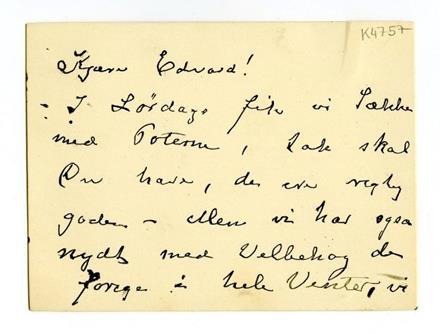 K4757
Kjære Edvard!
- I Lördags fik vi Sækken
med Poterne, tak skal
Du have, de ere rigtig
gode - Men vi har også
nydt med Velbehag de
forrige i hele Vinter, vi